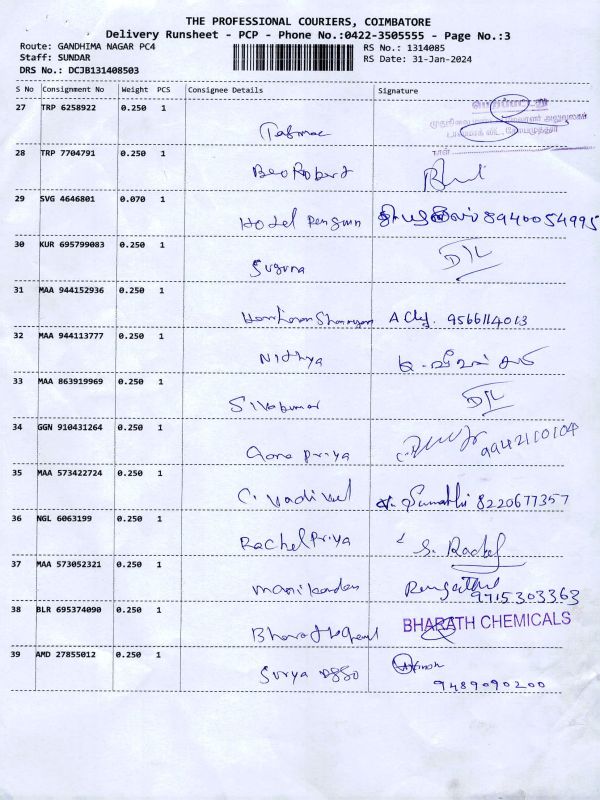 THE PROFESSIONAL COURIERS, COIMBATORE
Delivery Runsheet - PCP - Phone No.:0422-3505555 - Page No.:3
Route: GANDHIMA NAGAR PC4
RS No.: 1314085
Staff: SUNDAR
RS Date: 31-Jan-2024
DRS No.: DCJB131408503
S No Consignment No Weight PCS Consignee Details Signature
27 TRP 6258922 0.250 1
Tasmac
28 TRP 7704791 0.250 1
Beo Robert
29 SVG 4646801 0.070 1
Hotel Penguin 8940054995
30 KUR 695799083 0.250 1
Suguna D/L
31 MAA 944152936 0.250 1
9566114013
32 MAA 944113777 0.250 1
Nithya
33 MAA 863919969 0.250 1
Sivakumar D/L
34 GGN 910431264 0.250 1
Priya 9942110104
35 MAA 573422724 0.250 1
C. Vadivel 8220677357
36 NGL 6063199 0.250 1
Rachel Priya S. Rachel
37 MAA 573052321 0.250 1
Manikandan 9715303363
38 BLR 695374090 0.250 1
BHARATH CHEMICALS
39 AMD 27855012 0.250 1
Surya
9489090200